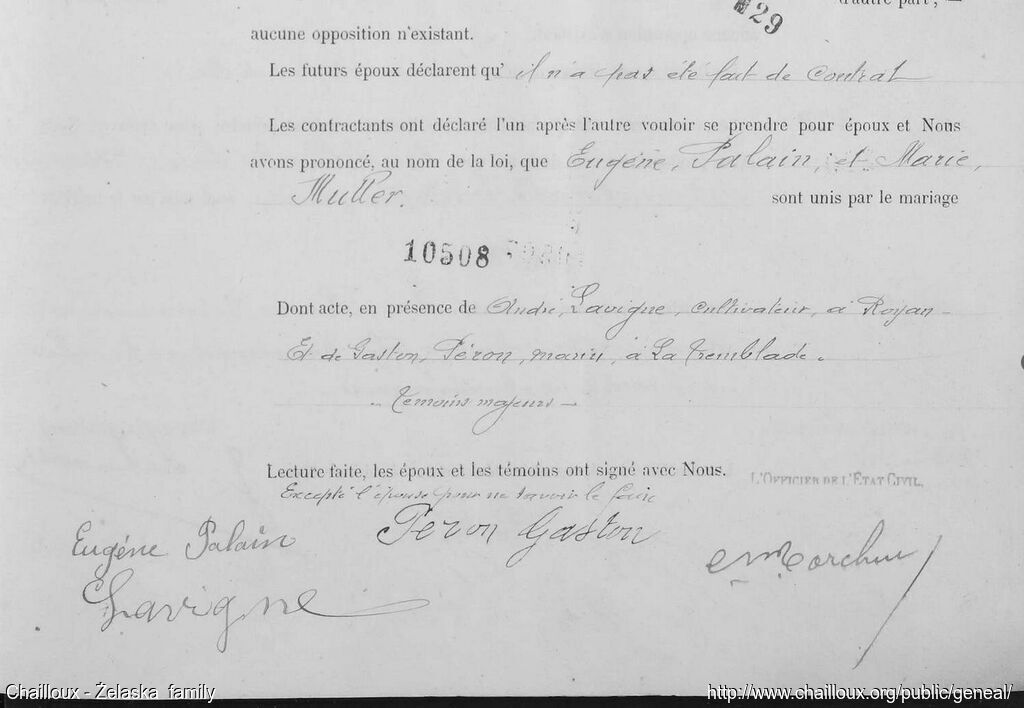 d'autre part ; —
29
aucune opposition n'existant.
Les futurs époux déclarent qu' il n'a pas été fait de contrat
Les contractants ont déclaré l'un après l'autre vouloir se prendre pour époux et Nous
avons prononcé, au nom de la loi, que Eugéne, Palain, et Marie,
Muller. sont unis par le mariage
10508
Dont acte, en présence de André, Lavigne, cultivateur, à Royan –
Et de Gaston, Péron, marin, à La Tremblade.
– Temoins majeurs –
Lecture faite, les époux et les témoins ont signé avec Nous.
Excepté l'épouse pour ne savoir le faire
L'OFFICIER DE L'ÉTAT CIVIL,
Eugéne Palain
Peron Gaston
Lavigne
Chailloux - Żelaska family
http://www.chailloux.org/public/geneal/